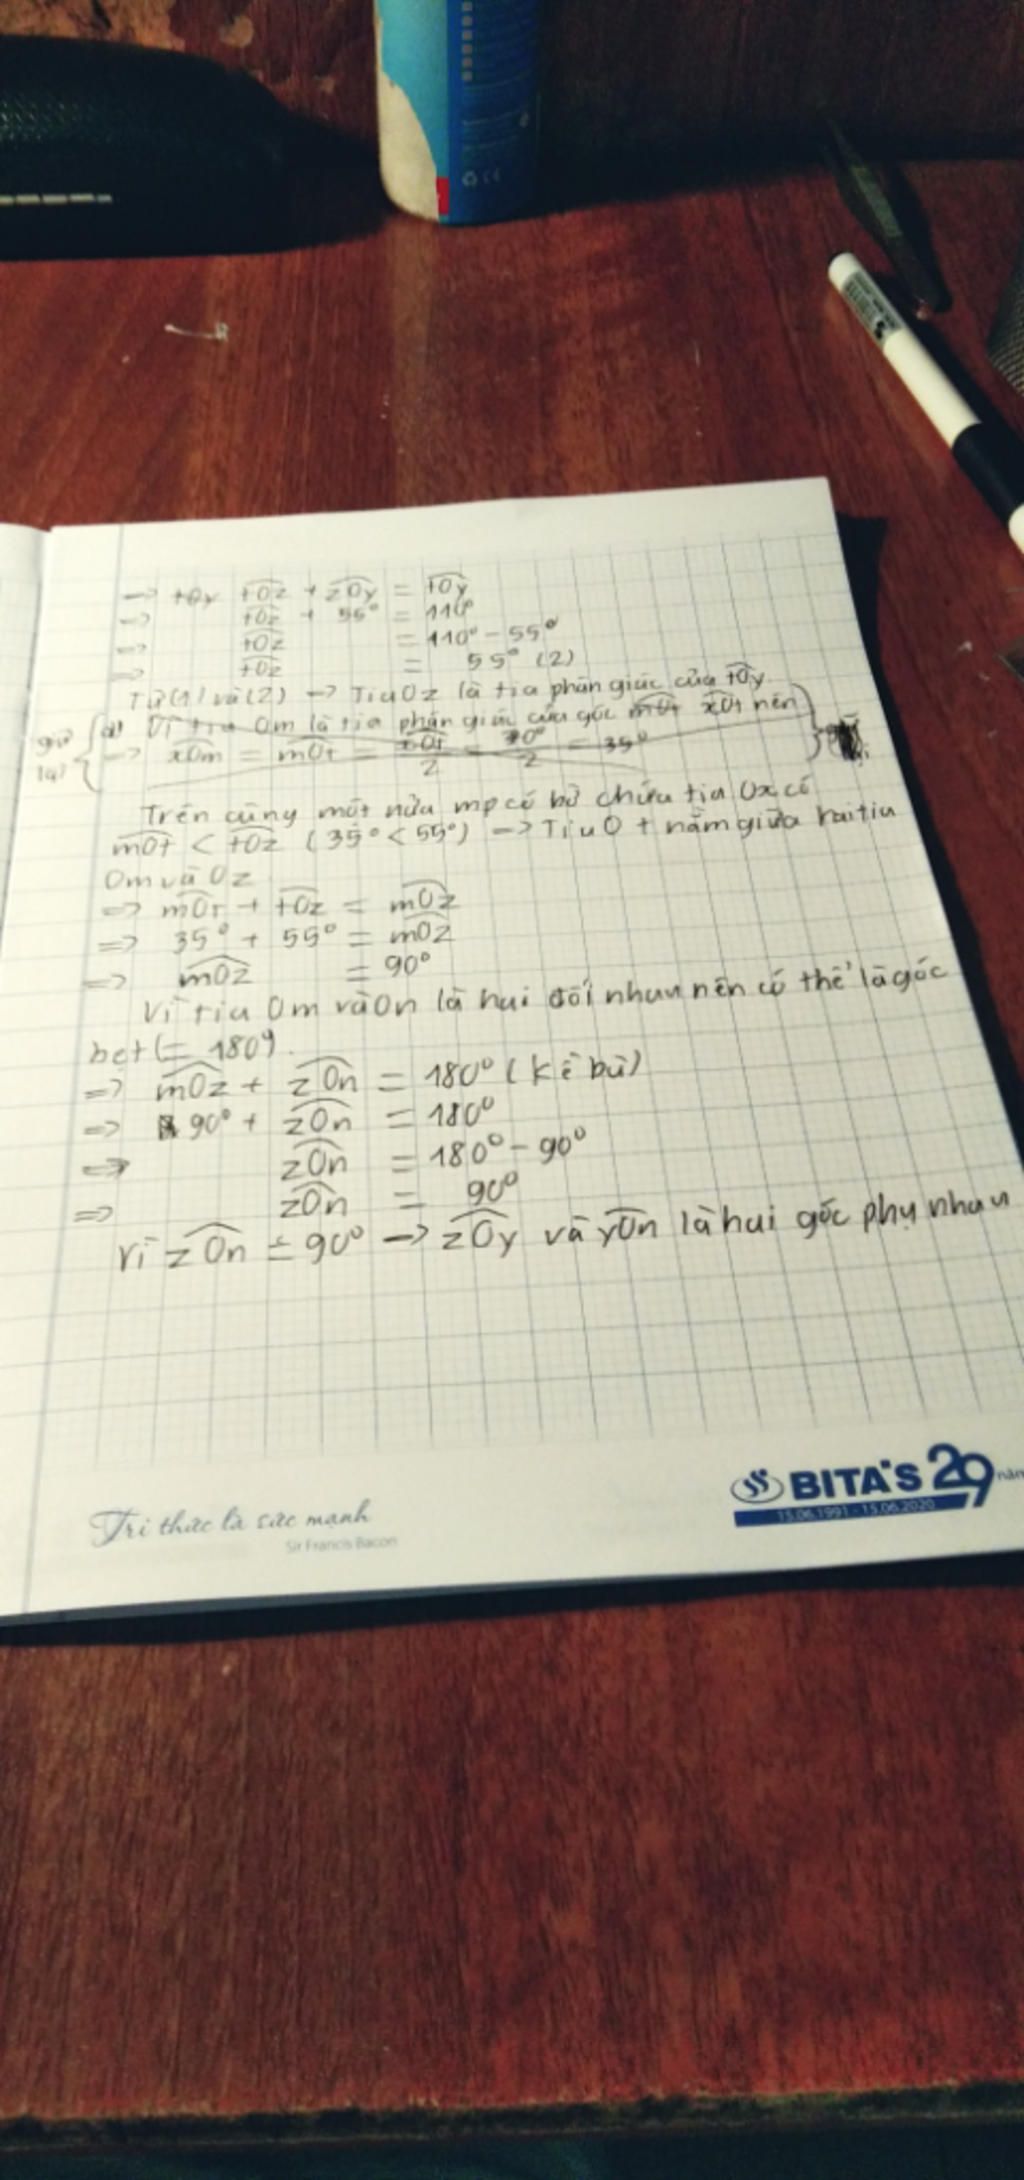 → tOy tOz + zOy = tOy
→ tOz + 55° = 110°
→ tOz = 110° - 55°
→ tOz = 55° (2)
Từ (1) và (2) → Tia Oz là tia phân giác của tOy
d) Vì tia Om là tia phân giác của góc mOt xOt nên
→ xOm = mOt = xOt/2 = 70°/2 = 35°
Trên cùng một nửa mp có bờ chứa tia Ox có
mOt < tOz (35° < 55°) → Tia Ot nằm giữa hai tia
Om và Oz
=> mOt + tOz = mOz
=> 35° + 55° = mOz
=> mOz = 90°
Vì tia Om và On là hai đối nhau nên có thể là góc
bẹt (= 180°).
=> mOz + zOn = 180° (kề bù)
=> 90° + zOn = 180°
=> zOn = 180° - 90°
=> zOn = 90°
Vì zOn = 90° → zOy và yOn là hai góc phụ nhau
Tri thức là sức mạnh
Sir Francis Bacon
BITA'S 29 năm
15.06.1991 - 15.06.2020